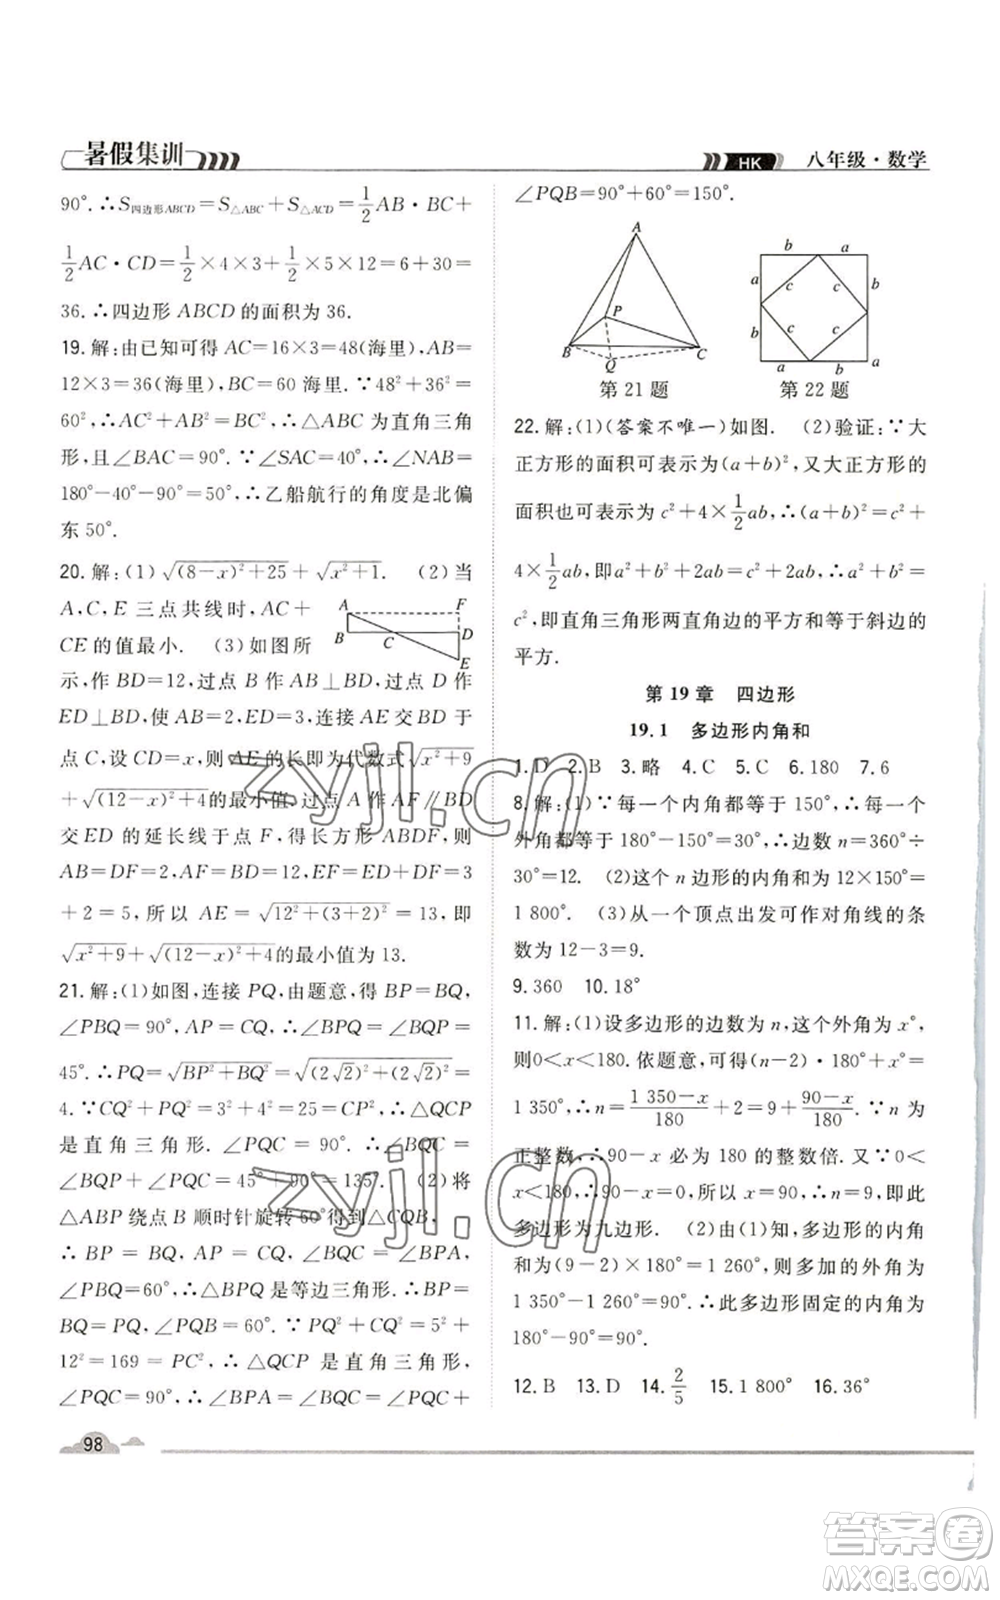 暑假集训
HK 八年级·数学
90°.∴S四边形ABCD=S△ABC+S△ACD=1/2AB·BC+
1/2AC·CD=1/2×4×3+1/2×5×12=6+30=
36.∴四边形 ABCD 的面积为 36.
19.解:由已知可得 AC=16×3=48(海里),AB=
12×3=36(海里),BC=60 海里.∵48²+36²=
60²,∴AC²+AB²=BC²,∴△ABC 为直角三角
形,且∠BAC=90°.∵∠SAC=40°,∴∠NAB=
180°-40°-90°=50°,∴乙船航行的角度是北偏
东 50°.
20.解:(1)√((8-x)²+25)+√(x²+1). (2)当
A,C,E 三点共线时,AC+
CE 的值最小. (3)如图所
A F
B C D
E
示,作 BD=12,过点 B 作 AB⊥BD,过点 D 作
ED⊥BD,使 AB=2,ED=3,连接 AE 交 BD 于
点 C,设 CD=x,则 AE 的长即为代数式√(x²+9)
+√((12-x)²+4)的最小值.过点 A 作 AF∥BD
交 ED 的延长线于点 F,得长方形 ABDF,则
AB=DF=2,AF=BD=12,EF=ED+DF=3
+2=5,所以 AE=√(12²+(3+2)²)=13,即
√(x²+9)+√((12-x)²+4)的最小值为 13.
21.解:(1)如图,连接 PQ,由题意,得 BP=BQ,
∠PBQ=90°,AP=CQ,∴∠BPQ=∠BQP=
45°.∴PQ=√(BP²+BQ²)=√((2√2)²+(2√2)²)=
4.∵CQ²+PQ²=3²+4²=25=CP²,∴△QCP
是直角三角形.∠PQC=90°.∴∠APB=
∠BPQ+∠PQC=45°+90°=135°. (2)将
△ABP 绕点 B 顺时针旋转 60°得到△CQB,
∴BP=BQ,AP=CQ,∠BQC=∠BPA,
∠PBQ=60°,∴△BPQ 是等边三角形.∴BP=
BQ=PQ,∠PQB=60°.∵PQ²+CQ²=5²+
12²=169=PC²,∴△QCP 是直角三角形,
∠PQC=90°,∴∠BPA=∠BQC=∠PQC+
∠PQB=90°+60°=150°.
A
P
B Q C
第 21 题
b a
a c c b
b c c a
a b
第 22 题
22.解:(1)(答案不唯一)如图. (2)验证:∵大
正方形的面积可表示为(a+b)²,又大正方形的
面积也可表示为 c²+4×1/2ab,∴(a+b)²=c²+
4×1/2ab,即a²+b²+2ab=c²+2ab,∴a²+b²=
c²,即直角三角形两直角边的平方和等于斜边的
平方.
第 19 章 四边形
19.1 多边形内角和
1.D 2.B 3.略 4.C 5.C 6.180 7.6
8.解:(1)∵每一个内角都等于 150°,∴每一个
外角都等于 180°-150°=30°,∴边数 n=360°÷
30°=12. (2)这个 n 边形的内角和为 12×150°=
1 800°. (3)从一个顶点出发可作对角线的条
数为 12-3=9.
9.360 10.18°
11.解:(1)设多边形的边数为 n,这个外角为 x°,
则0<x<180.依题意,可得(n-2)·180°+x°=
1 350°,∴n=(1 350-x)/180+2=9+(90-x)/180.∵n 为
正整数,∴90-x 必为 180 的整数倍.又∵0<
x<180,∴90-x=0,所以 x=90,n=9,即此
多边形为九边形. (2)由(1)知,多边形的内角
和为(9-2)×180°=1 260°,则多加的外角为
1 350°-1 260°=90°.∴此多边形固定的内角为
180°-90°=90°.
12.B 13.D 14.2/5 15.1 800° 16.36°
98
zyjl.cn
zyjl.cn
答案卷
MXQE.COM